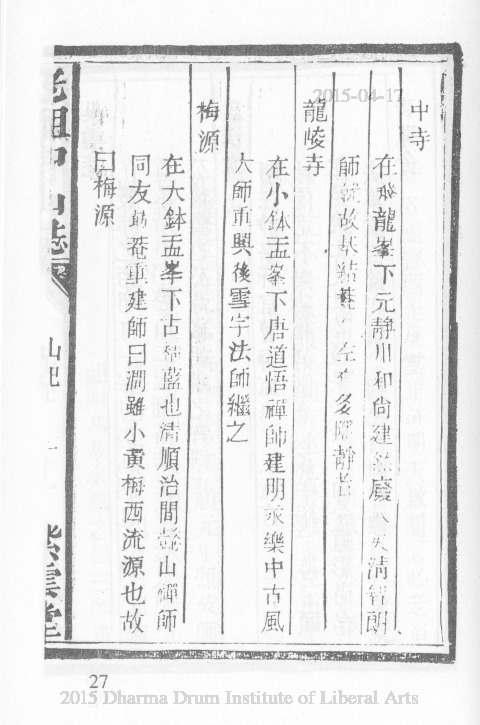 2015-04-17
中寺
在飛龍峯下元靜川和尚建
師就故基結菴 左右多隱靜者
龍崚寺
在小鉢盂峯下唐道悟禪師建明永樂中古風
大師重興後雪宇法師繼之
梅源
在大鉢盂峯下古 藍也清順治間 山禪師
同友 菴重建師曰澗雖小黃梅西流源也故
曰梅源
山
紫雲堂
27
2015 Dharma Drum Institute of Liberal Arts